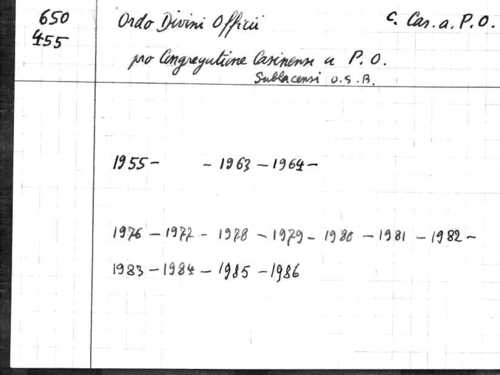 650 Ordo Divini Officii C. Cas. a. P. O.
455 pro Congregatione Casinensi a P. O.
Sublacensi O.S.B.
1955 - - 1963 - 1964 -
1976 - 1977 - 1978 - 1979 - 1980 - 1981 - 1982 -
1983 - 1984 - 1985 - 1986